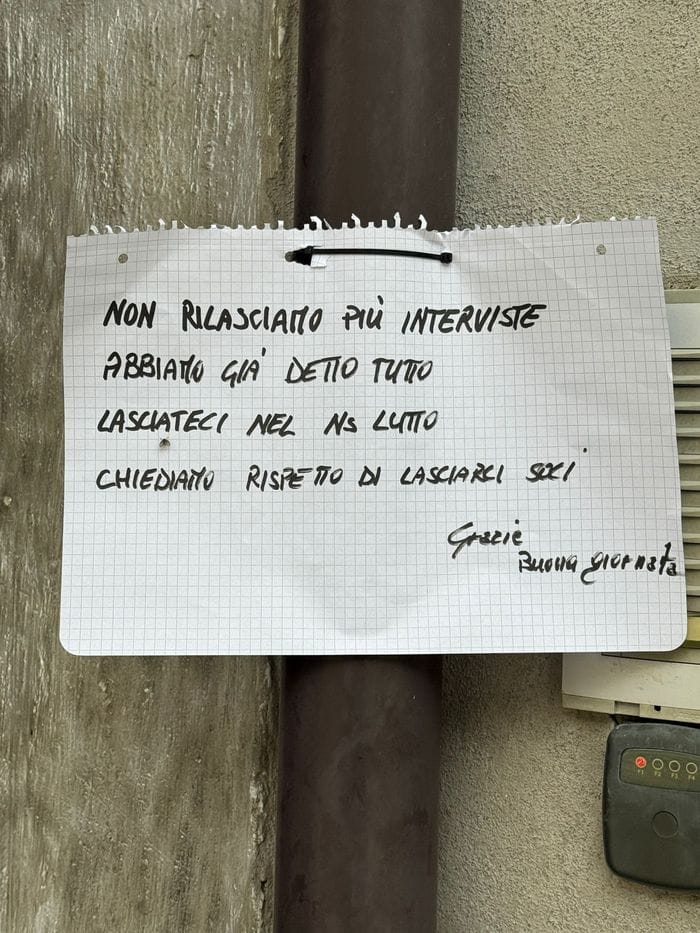 NON RILASCIAMO PIÙ INTERVISTE
ABBIAMO GIA' DETTO TUTTO
LASCIATECI NEL NS LUTTO
CHIEDIAMO RISPETTO DI LASCIARCI SOLI
Grazie
Buona giornata
F1 F2 F3 F4